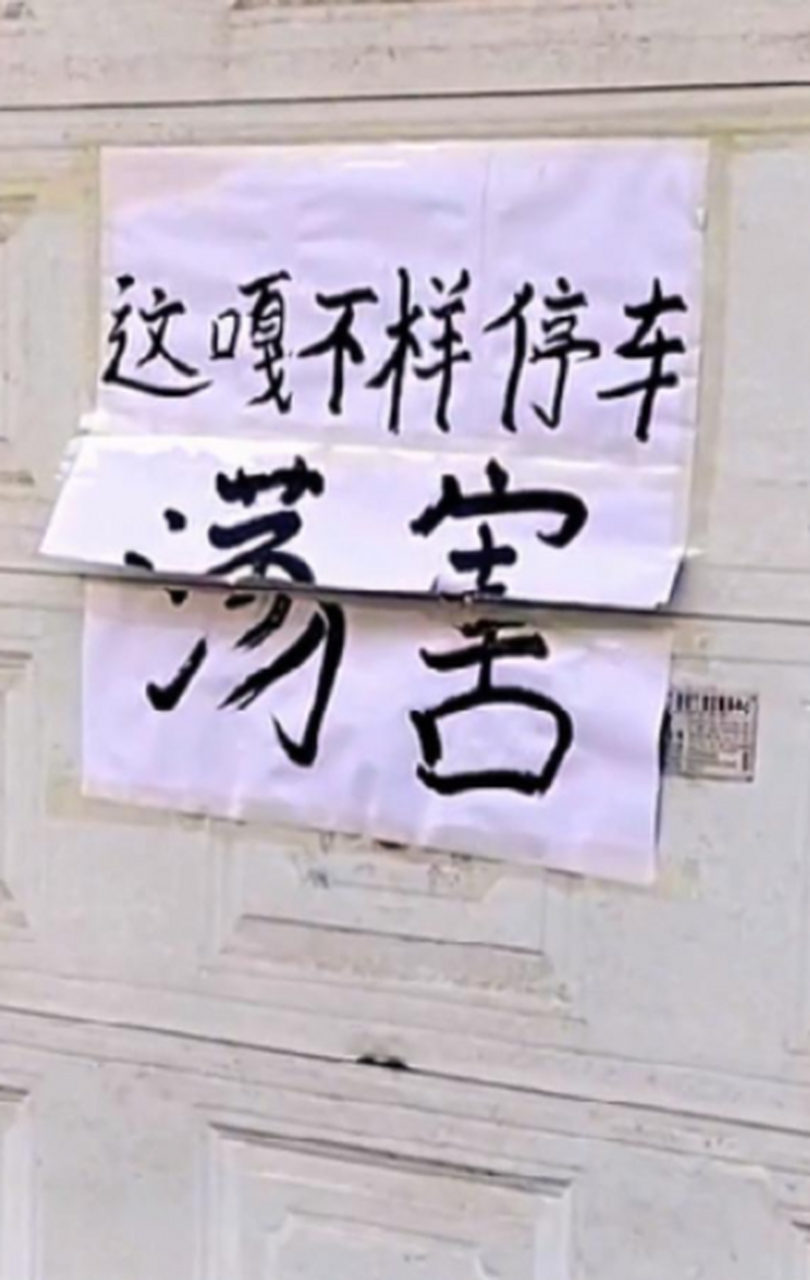 这嘎不样停车
荡害